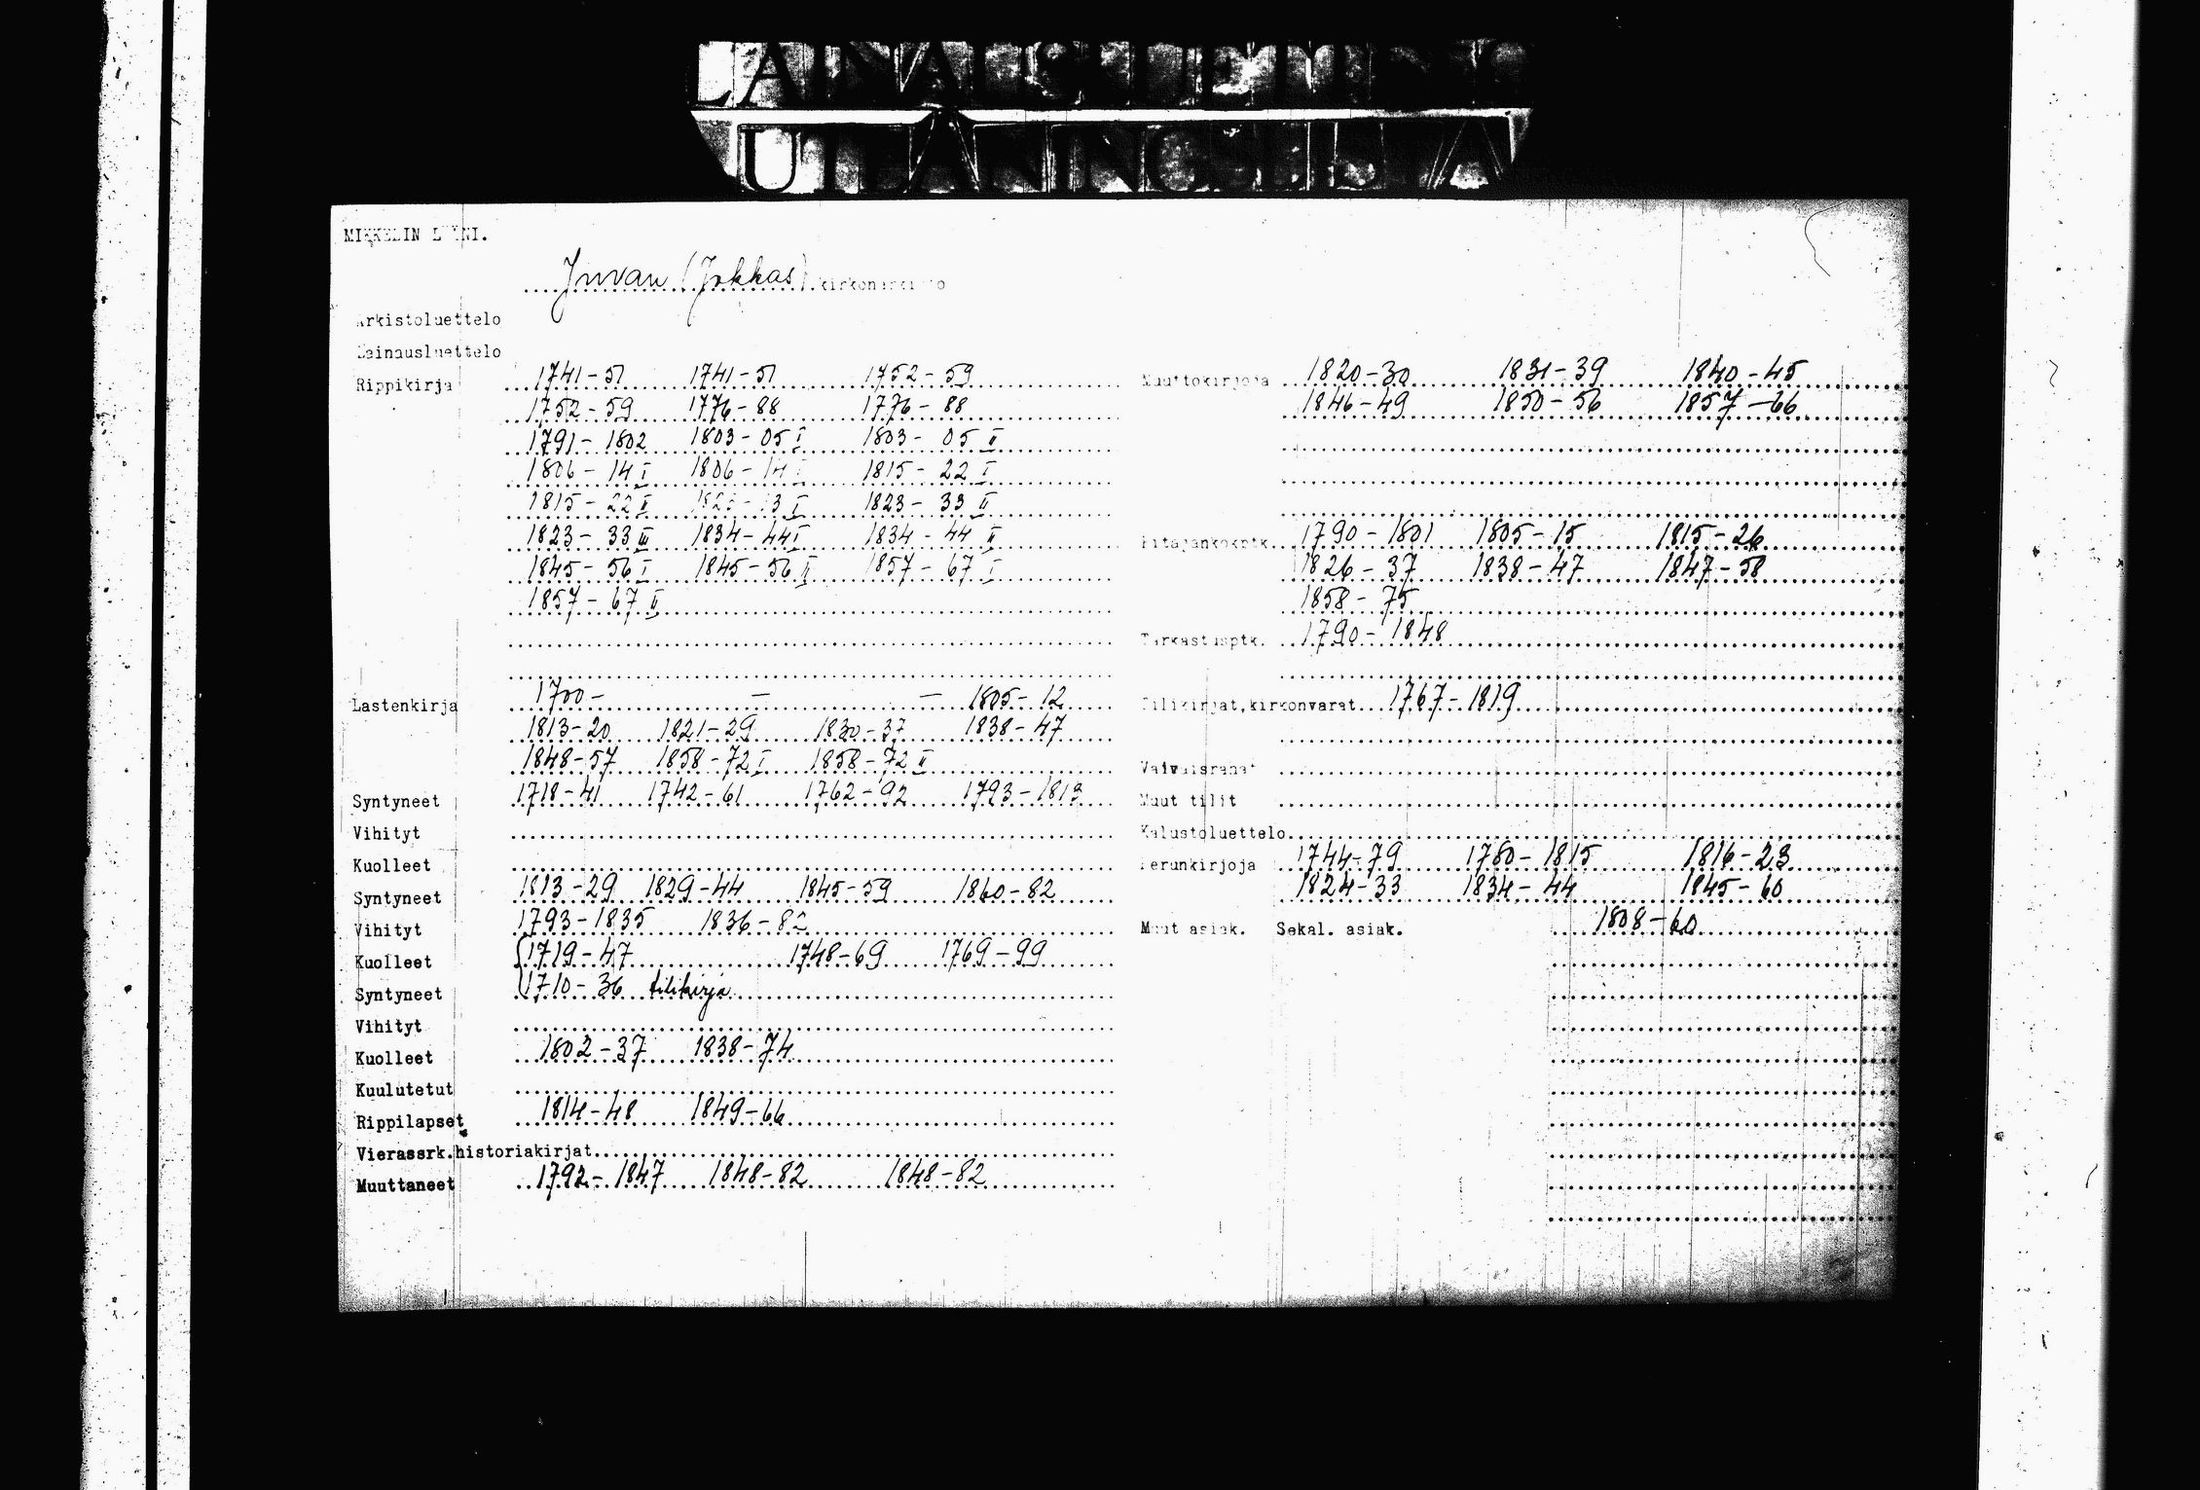 LAINAUSLUETTELO
UTLÅNINGSLISTA
MIKKELIN LÄÄNI.
Juvan (Jokkas) kirkonarkisto
Arkistoluettelo
Lainausluettelo
Rippikirja 1741-51 1741-51 1752-59
1752-59 1776-88 1776-88
1791-1802 1803-05 I 1803-05 II
1806-14 I 1806-14 1815-22 I
1815-22 II 1823-33 I 1823-33 II
1823-33 III 1834-44 I 1834-44 II
1845-56 I 1845-56 II 1857-67 I
1857-67 II
Lastenkirja 1700- — — 1805-12
1813-20 1821-29 1830-37 1838-47
1848-57 1858-72 I 1858-72 II
Syntyneet 1718-41 1742-61 1762-92 1793-1813
Vihityt
Kuolleet
Syntyneet 1813-29 1829-44 1845-59 1860-82
Vihityt 1793-1835 1836-82
Kuolleet 1719-47 1748-69 1769-99
Syntyneet 1710-36 tilikirja
Vihityt
Kuolleet 1802-37 1838-74
Kuulutetut
Rippilapset 1814-48 1849-66
Vierassrk.historiakirjat
Muuttaneet 1792-1847 1848-82 1848-82
Muuttokirjoja 1820-30 1831-39 1840-45
1846-49 1850-56 1857-66
Pitäjänkokptk. 1790-1801 1805-15 1815-26
1826-37 1838-47 1847-58
1858-75
Tarkastusptk. 1790-1848
Tilikirjat, kirkonvarat 1767-1819
Vaivaisrahat
Muut tilit
Kalustoluettelo
Perunkirjoja 1744-79 1780-1815 1816-23
1824-33 1834-44 1845-60
Muut asiak. Sekal. asiak. 1808-60